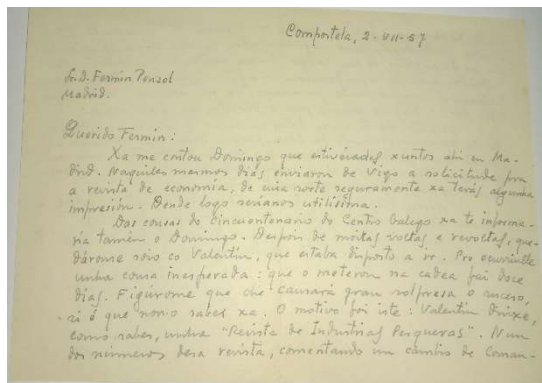 Compostela, 2-VII-57
Sr. D. Fermín Penzol
Madrid.
Querido Fermín:
Xa me contou Domingo que estivérades xuntos ahí en Ma-
drid. Naquiles mesmos días enviaron de Vigo a solicitude pra
a revista de economía, de cuia sorte seguramente xa terás algunha
impresión. Dende logo seríanos utilísima.
Das cousas do cincuentenario do Centro Galego xa te informa-
ría tamén o Domingo. Despois de moitas voltas e revoltas, que-
dáromos sóio co Valentín, que estaba disposto a ir. Pro ocurríulle
unha cousa inesperada: que o meteron na cadea fai doce
días. Figúrome que che causará gran sorpresa o suceso,
si é que non o sabes xa. O motivo foi iste: Valentín dirixe,
como sabes, unha "Revista de Industrias Pesqueras". Nun
dos números desa revista, comentando un cambio de Coman-